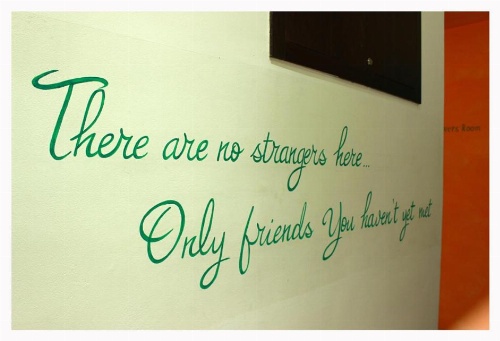 There are no strangers here...
Only friends You haven't yet met
Room